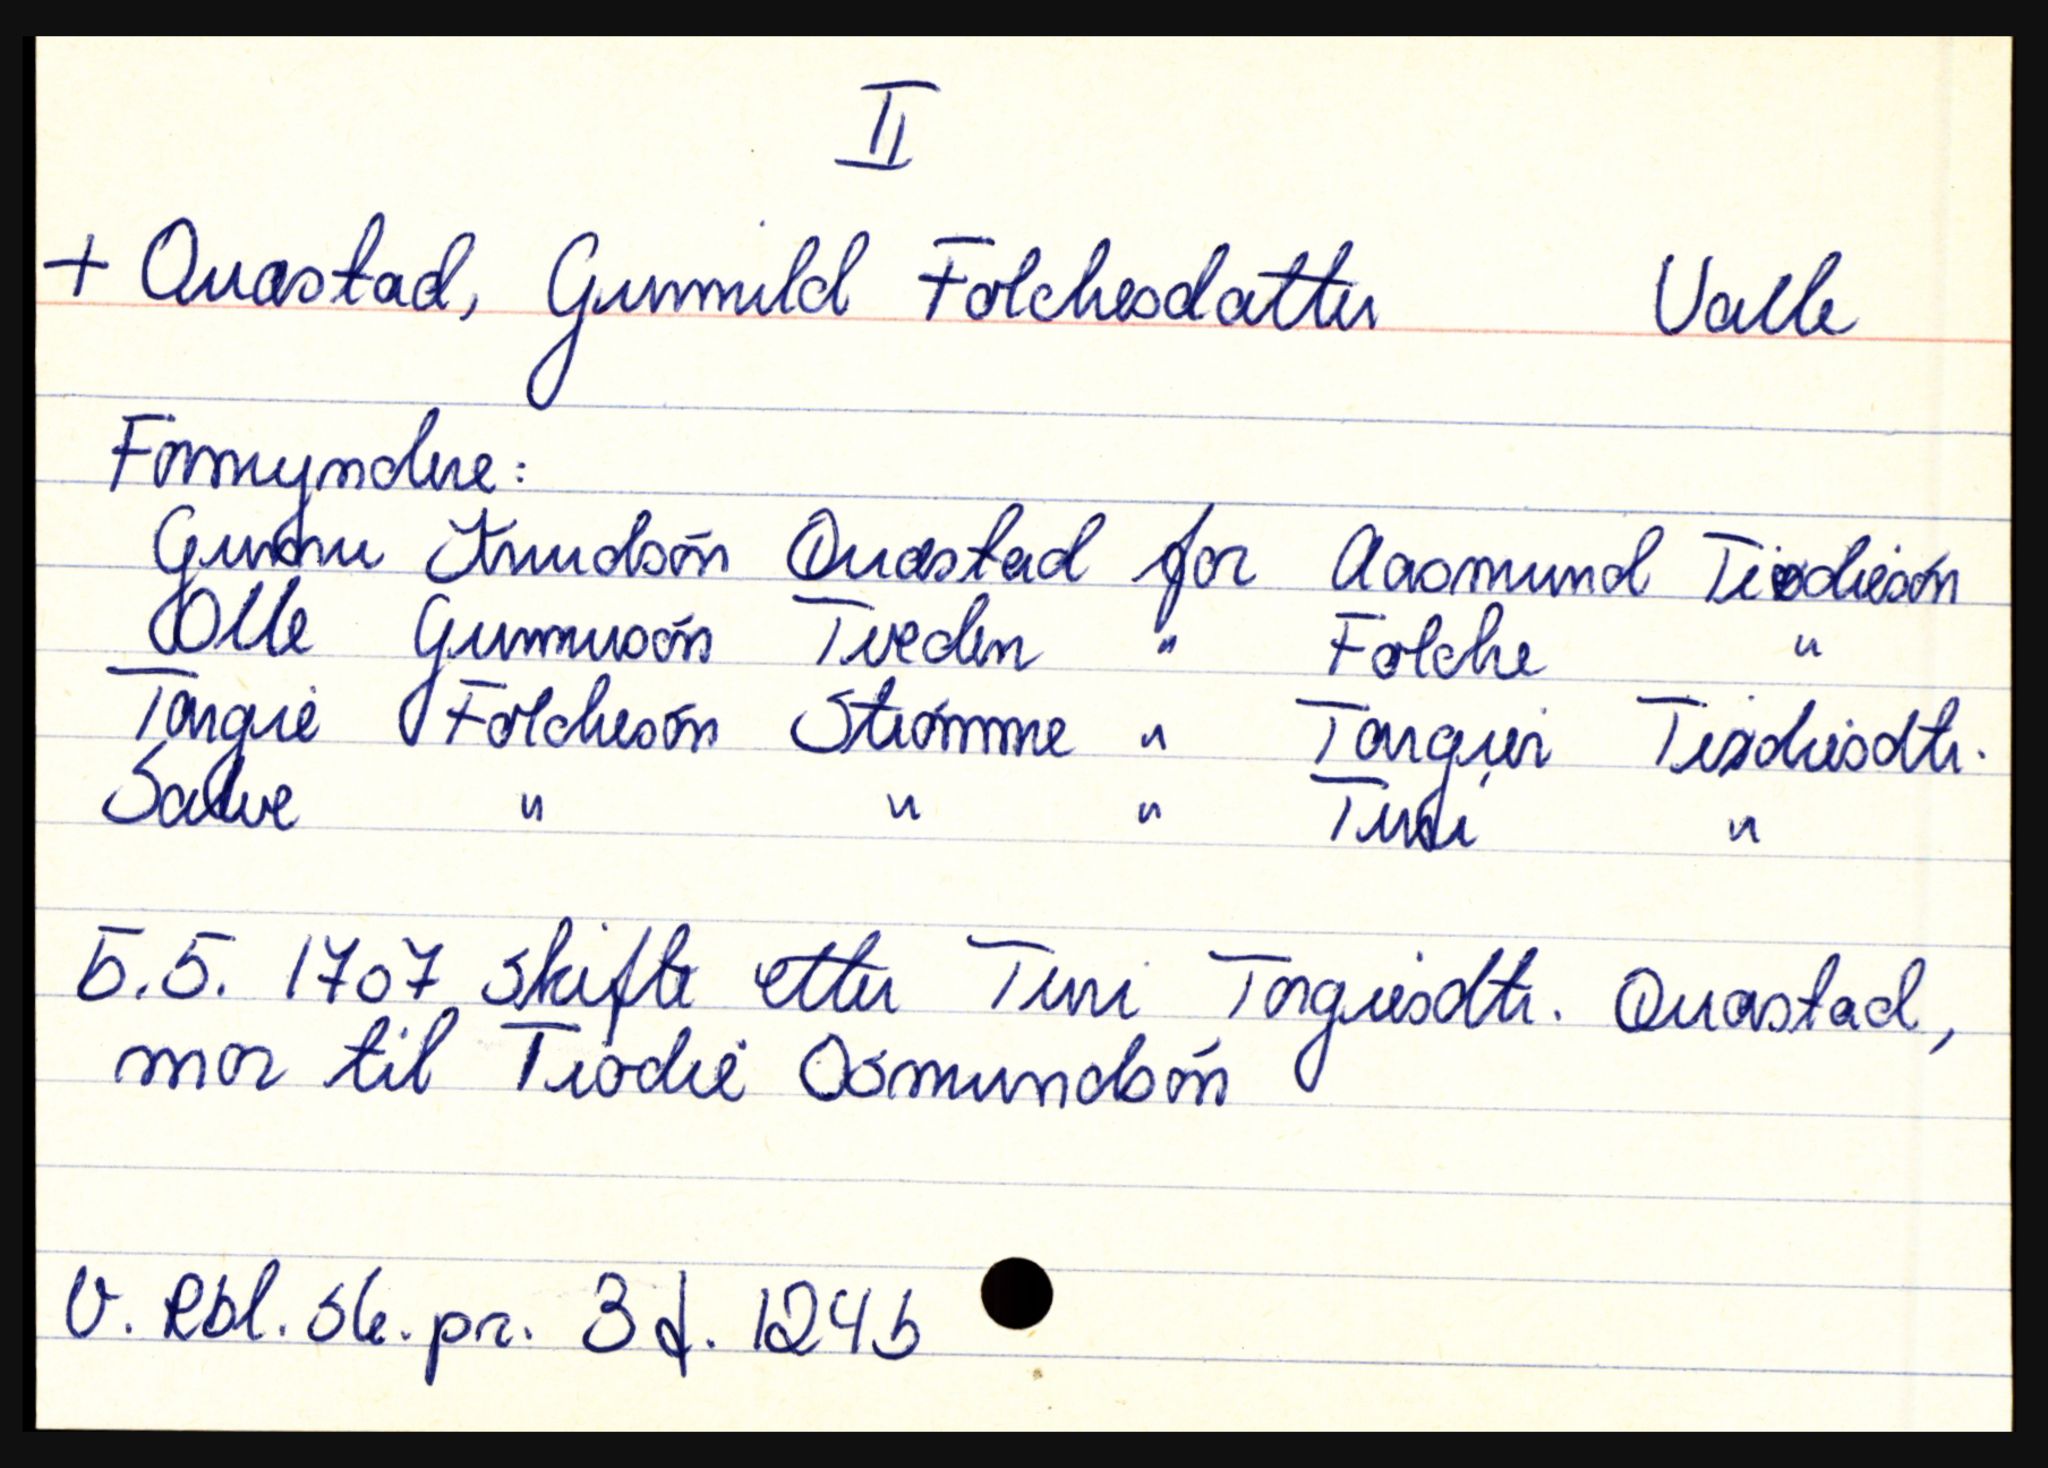 II
+ Quastad, Gunnild Folchesdatter Valle
Formyndere:
Gunnu Knudsøn Quastad for Aasmund Tiodiesøn
Olle Gunnusøn Tveden " Folche "
Torgie Folchesøn Strømme " Torguer Tiodiesdtr.
Salve " " " Turi "
5.5. 1707 skifte etter Turi Torgiesdtr. Quastad,
mor til Tiodie Osmundsøn
V. Rbl. sk. pr. 3 f. 124 b